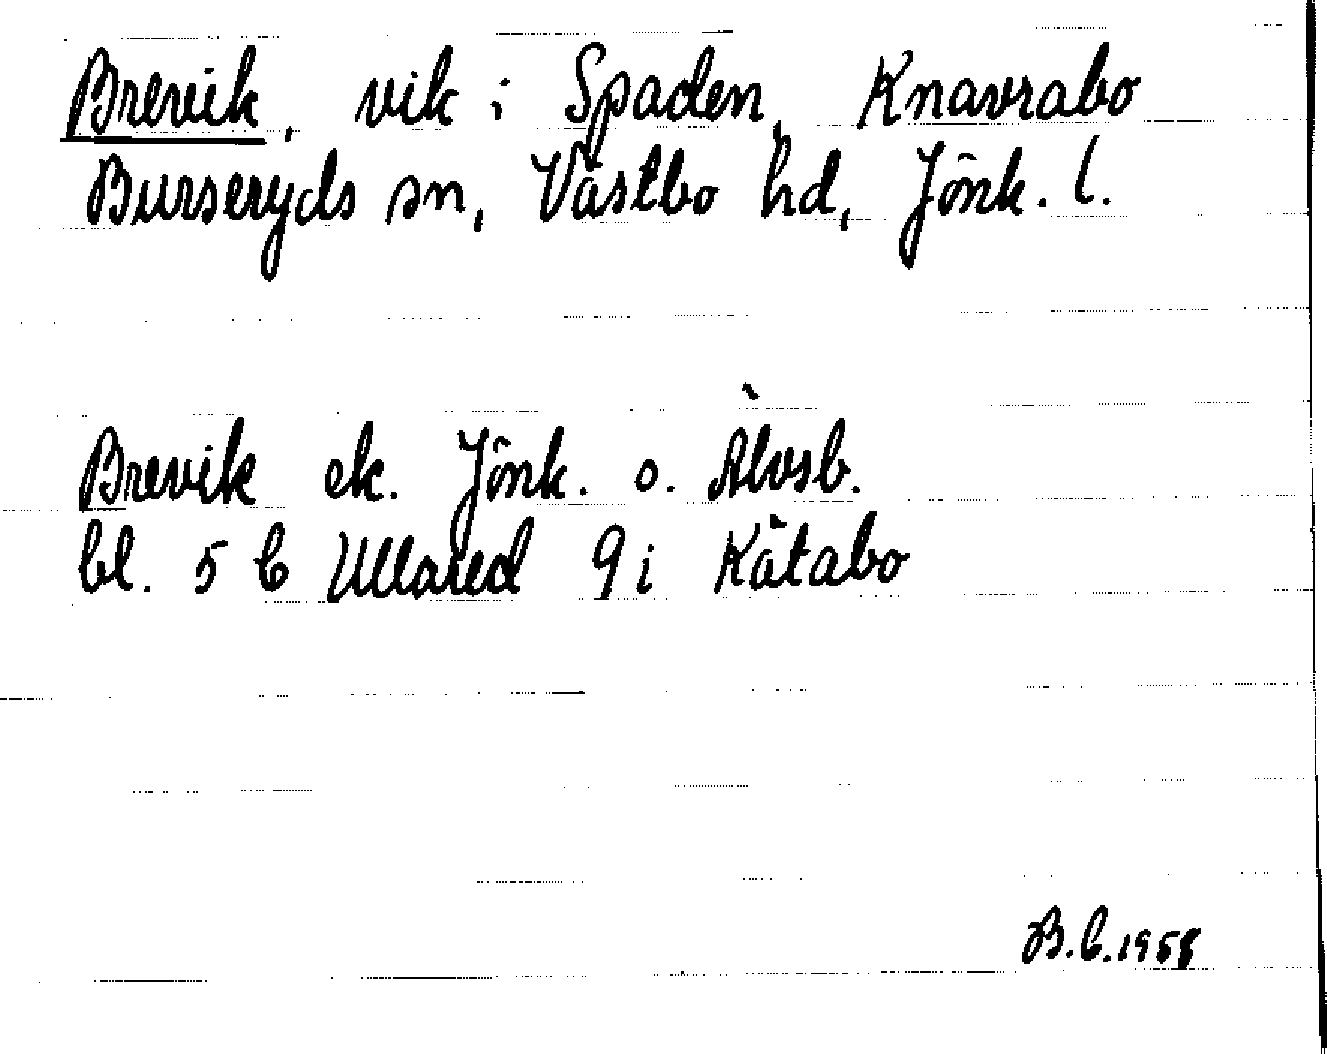 Brevik, vik i Spaden, Knavrabo
Burseryds sn, Västbo hd, Jönk. l.
Brevik ek. Jönk. o. Älvsb.
bl. 5 b Ullared 9 i Kåtabo
B.C. 1958